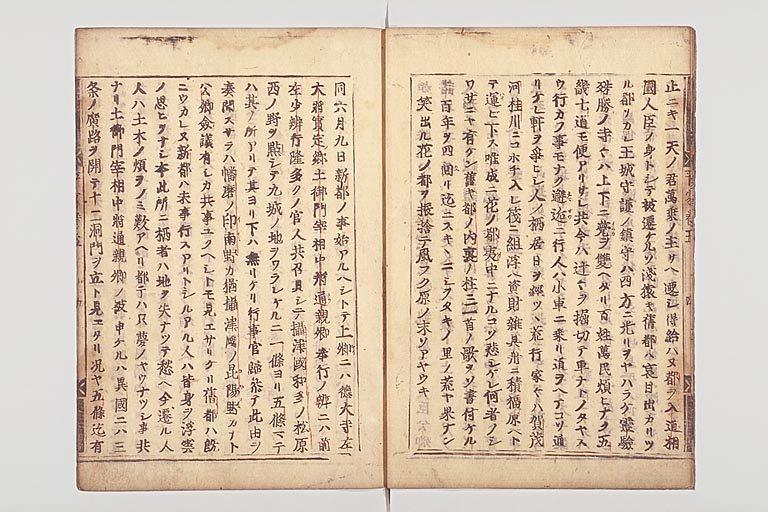 止ニキ一天ノ君萬乗ノ主サヘ遷シ得給ハヌ都ヲ入道相
國人臣ノ身トシテ被遷ケルソ淺猿キ舊都ハ哀目出カリツ
ル都ソカシ王城守護ノ鎮守ハ四方ニ光リヲヤハラケ靈驗
殊勝ノ寺々ハ上下ニ甍ヲ雙ヘタリ百姓萬民煩ヒナク五
畿七道モ便アリサレ共今ハ辻々ヲ掘切テ車ナトノタヤス
ウ行カフ事モナク邂逅ニ行人ハ小車ニ乗リ道ヲヘテコソ通
リケレ軒ヲ爭ヒシ人ノ栖居日ヲ經ツヽ荒行家々ハ賀茂
河桂川ニコホチ入レ筏ニ組浮ヘ資財雜具舟ニ積福原ヘト
テ運ヒ下ス唯成ニ花ノ都夷中ニナルコソ悲シケレ何者ノシ
ワサニヤ有ケン舊キ都ノ内裏ノ柱ニ二首ノ歌ヲソ書付ケル
百年ヲ四回リ迄ニスキヽニシヲタキノ里ノ荒ヤ果ナン
笑出ル花ノ都ヲ振捨テ風フク原ノ末ソアヤウキ
同六月九日新都ノ事始アルヘシトテ上卿ニハ德大寺左
大將實定卿土御門宰相中將通親卿奉行ノ辨ニハ前
左少辨行隆多クノ官人共召具シテ攝津國和多ノ松原
西ノ野ヲ點シテ九城ノ地ヲワラレケルニ一條ヨリ五條マテ
ハ其ノ所アリテ其ヨリ下ハ無リケリ行事官歸參テ此由ヲ
奏聞スサラハ幡磨ノ印南野カ猶攝津國ノ昆陽野カナト
公卿僉議有シカ共事ユクヘシトモ見エサリケリ舊都ハ既
ニウカレヌ新都ハ未事行スアリトシアル人ハ皆身ヲ浮雲
ノ思ヒヲナシ本此所ニ栖者ハ地ヲ失ナツテ愁ヘ今遷ル人
人ハ土木ノ煩ヲノミ歎アヘリ都テハ只夢ノヤウナツシ事共
ナリ土御門宰相中將通親卿ノ被申ケルハ異國ニハ三
条ノ廣路ヲ開テ十二洞門ヲ立ト見エタリ况ヤ五條迄有